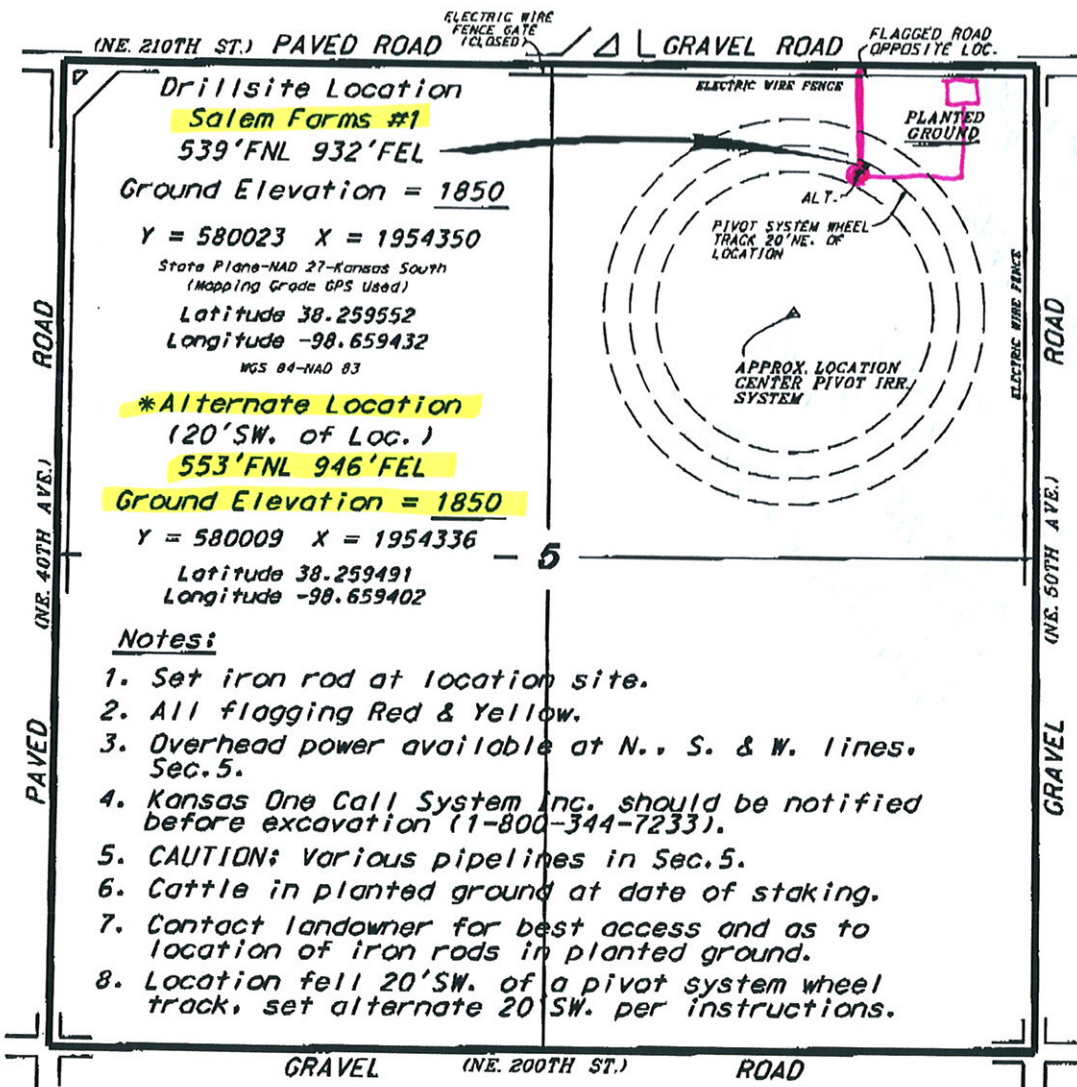 ELECTRIC WIRE
FENCE GATE
(CLOSED)
(NE. 210TH ST.) PAVED ROAD
GRAVEL ROAD
FLAGGED ROAD
OPPOSITE LOC.
Drillsite Location
Salem Farms #1
539'FNL 932'FEL
Ground Elevation = 1850
Y = 580023 X = 1954350
State Plane-NAD 27-Kansas South
(Mapping Grade GPS Used)
Latitude 38.259552
Longitude -98.659432
WGS 84-NAD 83
*Alternate Location
(20'SW. of Loc.)
553'FNL 946'FEL
Ground Elevation = 1850
Y = 580009 X = 1954336
Latitude 38.259491
Longitude -98.659402
ELECTRIC WIRE FENCE
PLANTED
GROUND
ALT.
PIVOT SYSTEM WHEEL
TRACK 20'NE. OF
LOCATION
APPROX. LOCATION
CENTER PIVOT IRR.
SYSTEM
ELECTRIC WIRE FENCE
5
PAVED (NE. 40TH AVE.) ROAD
GRAVEL (NE. 50TH AVE.) ROAD
Notes:
1. Set iron rod at location site.
2. All flagging Red & Yellow.
3. Overhead power available at N., S. & W. lines.
Sec.5.
4. Kansas One Call System Inc. should be notified
before excavation (1-800-344-7233).
5. CAUTION: Various pipelines in Sec.5.
6. Cattle in planted ground at date of staking.
7. Contact landowner for best access and as to
location of iron rods in planted ground.
8. Location fell 20'SW. of a pivot system wheel
track, set alternate 20'SW. per instructions.
GRAVEL (NE. 200TH ST.) ROAD